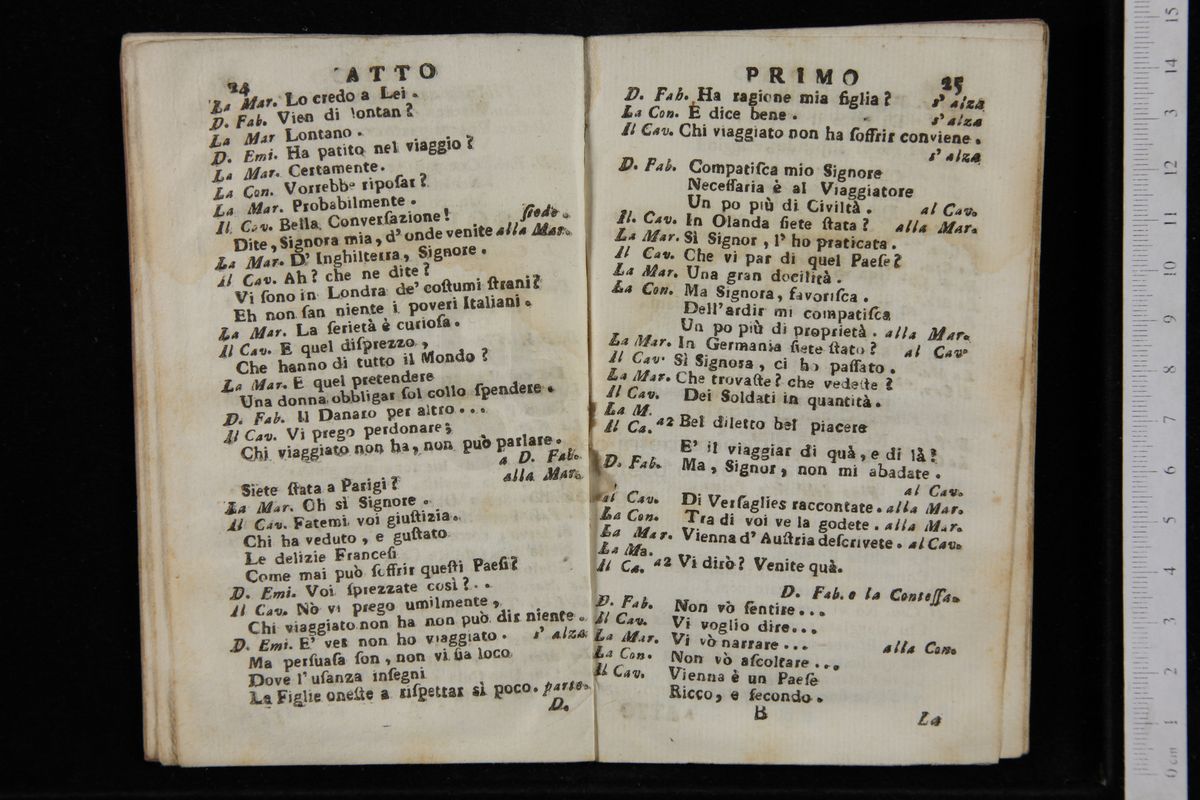 24 ATTO
La Mar. Lo credo a Lei.
D. Fab. Vien di lontan?
La Mar Lontano.
D. Emi. Ha patito nel viaggio?
La Mar. Certamente.
La Con. Vorrebbe riposar?
La Mar. Probabilmente.
Il Cav. Bella Conversazione! siede.
Dite, Signora mia, d'onde venite alla Mar.
La Mar. D' Inghilterra, Signore.
Il Cav. Ah? che ne dite?
Vi ſono in Londra de' coſtumi ſtrani?
Eh non ſan niente i poveri Italiani.
La Mar. La ſerietà è curioſa.
Il Cav. E quel diſprezzo,
Che hanno di tutto il Mondo?
La Mar. E quel pretendere
Una donna obbligar ſol collo ſpendere.
D. Fab. Il Danaro per altro...
Il Cav. Vi prego perdonare;
Chi viaggiato non ha, non può parlare.
a D. Fab.
alla Mar.
Siete ſtata a Parigi?
La Mar. Oh sì Signore.
Il Cav. Fatemi voi giuſtizia.
Chi ha veduto, e guſtato
Le delizie Franceſi
Come mai può ſoffrir queſti Paeſi?
D. Emi. Voi ſprezzate così?..
Il Cav. Nò vi prego umilmente,
Chi viaggiato non ha non può dir niente.
D. Emi. E' ver non ho viaggiato. s' alza
Ma perſuaſa ſon, non vi ſia loco
Dove l'uſanza inſegni
La Figlie oneſte a riſpettar sì poco. parte.
D.
PRIMO 25
D. Fab. Ha ragione mia figlia? s' alza
La Con. E dice bene. s' alza
Il Cav. Chi viaggiato non ha ſoffrir conviene.
s' alza
D. Fab. Compatiſca mio Signore
Neceſſaria è al Viaggiatore
Un po più di Civiltà. al Cav.
Il. Cav. In Olanda ſiete ſtata? alla Mar.
La Mar. Sì Signor, l' ho praticata.
Il Cav. Che vi par di quel Paeſe?
La Mar. Una gran docilità.
La Con. Ma Signora, favoriſca.
Dell'ardir mi compatiſca
Un po più di proprietà. alla Mar.
La Mar. In Germania ſiete ſtato? al Cav.
Il Cav. Sì Signora, ci ho paſſato.
La Mar. Che trovaſte? che vedeſte?
Il Cav. Dei Soldati in quantità.
La M.
Il Ca. a2 Bel diletto bel piacere
E' il viaggiar di quà, e di là?
D. Fab. Ma, Signor, non mi abadate.
al Cav.
al Cav. Di Verſaglies raccontate. alla Mar.
La Con. Tra di voi ve la godete. alla Mar.
La Mar. Vienna d' Auſtria deſcrivete. al Cav.
La Ma.
Il Ca. a2 Vi dirò? Venite quà.
D. Fab. e la Conteſſa.
D. Fab. Non vò ſentire...
Il Cav. Vi voglio dire...
La Mar. Vi vò narrare... alla Con.
La Con. Non vò aſcoltare...
Il Cav. Vienna è un Paeſe
Ricco, e fecondo.
B La